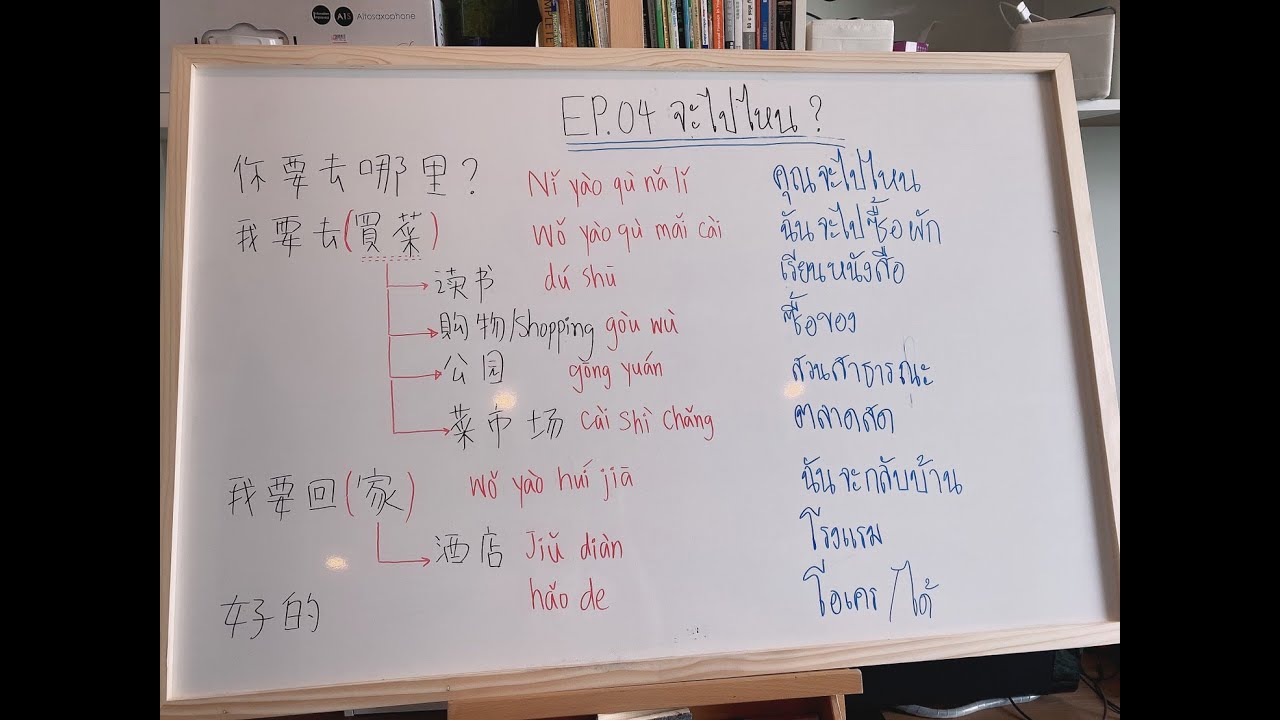 A15 Altosaxophone
EP.04 จะไปไหน?
你要去哪里? Nǐ yào qù nǎ lǐ คุณจะไปไหน
我要去(買菜) Wǒ yào qù mǎi cài ฉันจะไปซื้อผัก
读书 dú shū เรียนหนังสือ
購物/shopping gòu wù ซื้อของ
公园 gōng yuán สวนสาธารณะ
菜市场 cài shì chǎng ตลาดสด
我要回(家) wǒ yào huí jiā ฉันจะกลับบ้าน
酒店 Jiǔ diàn โรงแรม
好的 hǎo de โอเคร/ได้